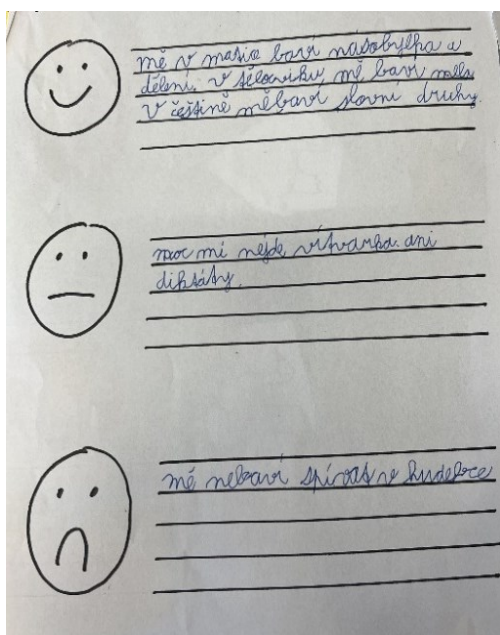 mě v matice baví násobylka a
dělení. v tělocviku mě baví
V češtině mě baví slovní druhy.
moc mi nejde vítvarka. ani
diktáty.
mé nebaví spívat v hudebce